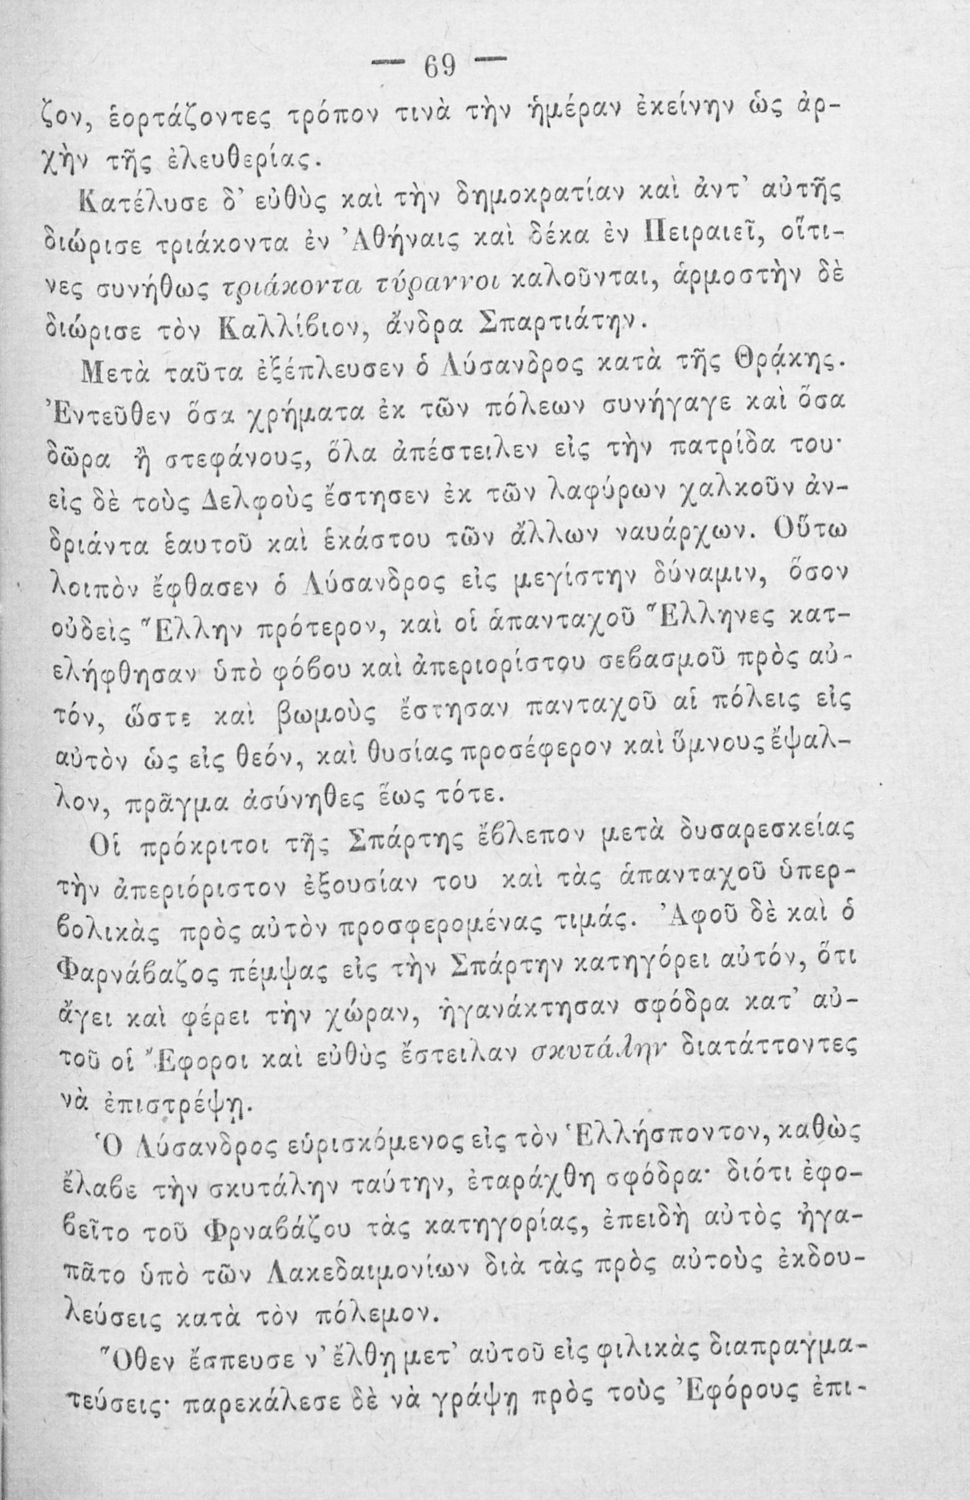 — 69 —
ζον, ἑορτάζοντες τρόπον τινὰ τὴν ἡμέραν ἐκείνην ὡς ἀρ-
χὴν τῆς ἐλευθερίας.
Κατέλυσε δ' εὐθὺς καὶ τὴν δημοκρατίαν καὶ ἀντ' αὐτῆς
διώρισε τριάκοντα ἐν Ἀθήναις καὶ δέκα ἐν Πειραιεῖ, οἵτι-
νες συνήθως τριάκοντα τύραννοι καλοῦνται, ἁρμοστὴν δὲ
διώρισε τὸν Καλλίβιον, ἄνδρα Σπαρτιάτην.
Μετὰ ταῦτα ἐξέπλευσεν ὁ Λύσανδρος κατὰ τῆς Θρᾴκης.
Ἐντεῦθεν ὅσα χρήματα ἐκ τῶν πόλεων συνήγαγε καὶ ὅσα
δῶρα ἢ στεφάνους, ὅλα ἀπέστειλεν εἰς τὴν πατρίδα του·
εἰς δὲ τοὺς Δελφοὺς ἔστησεν ἐκ τῶν λαφύρων χαλκοῦν ἀν-
δριάντα ἑαυτοῦ καὶ ἑκάστου τῶν ἄλλων ναυάρχων. Οὕτω
λοιπὸν ἔφθασεν ὁ Λύσανδρος εἰς μεγίστην δύναμιν, ὅσον
οὐδεὶς Ἕλλην πρότερον, καὶ οἱ ἁπανταχοῦ Ἕλληνες κατ-
ελήφθησαν ὑπὸ φόβου καὶ ἀπεριορίστου σεβασμοῦ πρὸς αὐ-
τόν, ὥστε καὶ βωμοὺς ἔστησαν πανταχοῦ αἱ πόλεις εἰς
αὐτὸν ὡς εἰς θεόν, καὶ θυσίας προσέφερον καὶ ὕμνους ἔψαλ-
λον, πρᾶγμα ἀσύνηθες ἕως τότε.
Οἱ πρόκριτοι τῆς Σπάρτης ἔβλεπον μετὰ δυσαρεσκείας
τὴν ἀπεριόριστον ἐξουσίαν του καὶ τὰς ἁπανταχοῦ ὑπερ-
βολικὰς πρὸς αὐτὸν προσφερομένας τιμάς. Ἀφοῦ δὲ καὶ ὁ
Φαρνάβαζος πέμψας εἰς τὴν Σπάρτην κατηγόρει αὐτόν, ὅτι
ἄγει καὶ φέρει τὴν χώραν, ἠγανάκτησαν σφόδρα κατ' αὐ-
τοῦ οἱ Ἔφοροι καὶ εὐθὺς ἔστειλαν σκυτάλην διατάττοντες
νὰ ἐπιστρέψῃ.
Ὁ Λύσανδρος εὑρισκόμενος εἰς τὸν Ἑλλήσποντον, καθὼς
ἔλαβε τὴν σκυτάλην ταύτην, ἐταράχθη σφόδρα· διότι ἐφο-
βεῖτο τοῦ Φρναβάζου τὰς κατηγορίας, ἐπειδὴ αὐτὸς ἠγα-
πᾶτο ὑπὸ τῶν Λακεδαιμονίων διὰ τὰς πρὸς αὐτοὺς ἐκδου-
λεύσεις κατὰ τὸν πόλεμον.
Ὅθεν ἔσπευσε ν' ἔλθῃ μετ' αὐτοῦ εἰς φιλικὰς διαπραγμα-
τεύσεις· παρεκάλεσε δὲ νὰ γράψῃ πρὸς τοὺς Ἐφόρους ἐπι-